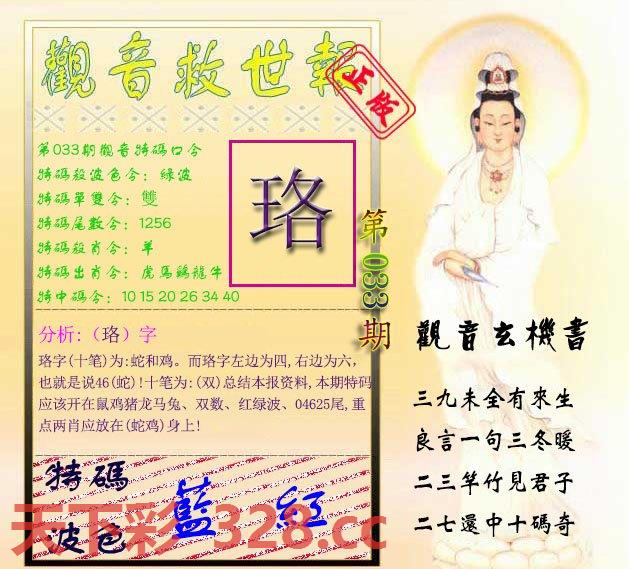 觀音救世報
正版
第033期觀音特碼口令
特碼殺波色令：綠波
特碼單雙令：雙
特碼尾數令：1256
特碼殺肖令：羊
特碼出肖令：虎馬鷄龍牛
特中碼令：10 15 20 26 34 40
珞
第033期
分析:（珞）字
珞字(十笔)为:蛇和鸡。而珞字左边为四,右边为六,
也就是说46(蛇)!十笔为:(双)总结本报资料,本期特码
应该开在鼠鸡猪龙马兔、双数、红绿波、04625尾,重
点两肖应放在(蛇鸡)身上!
特碼
波色
藍 紅
天下彩4328.cc
觀音玄機書
三九未全有來生
良言一句三冬暖
二三竿竹見君子
二七還中十碼奇